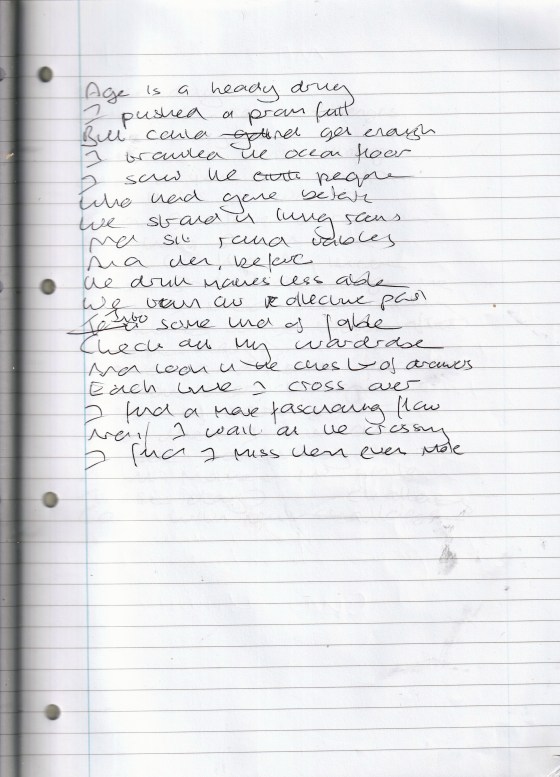 Age is a heady drug
I pushed a pram full
But could not get enough
I trawled the ocean floor
I saw the people
Who had gone before
We stand in living rooms
And sit round tables
And then, before
The drink makes less able
We turn our collective past
Into some kind of fable
Check out my wardrobe
And look in the chest of drawers
Each time I cross over
I find a more fascinating flaw
And I wait at the crossing
I find I miss them even more